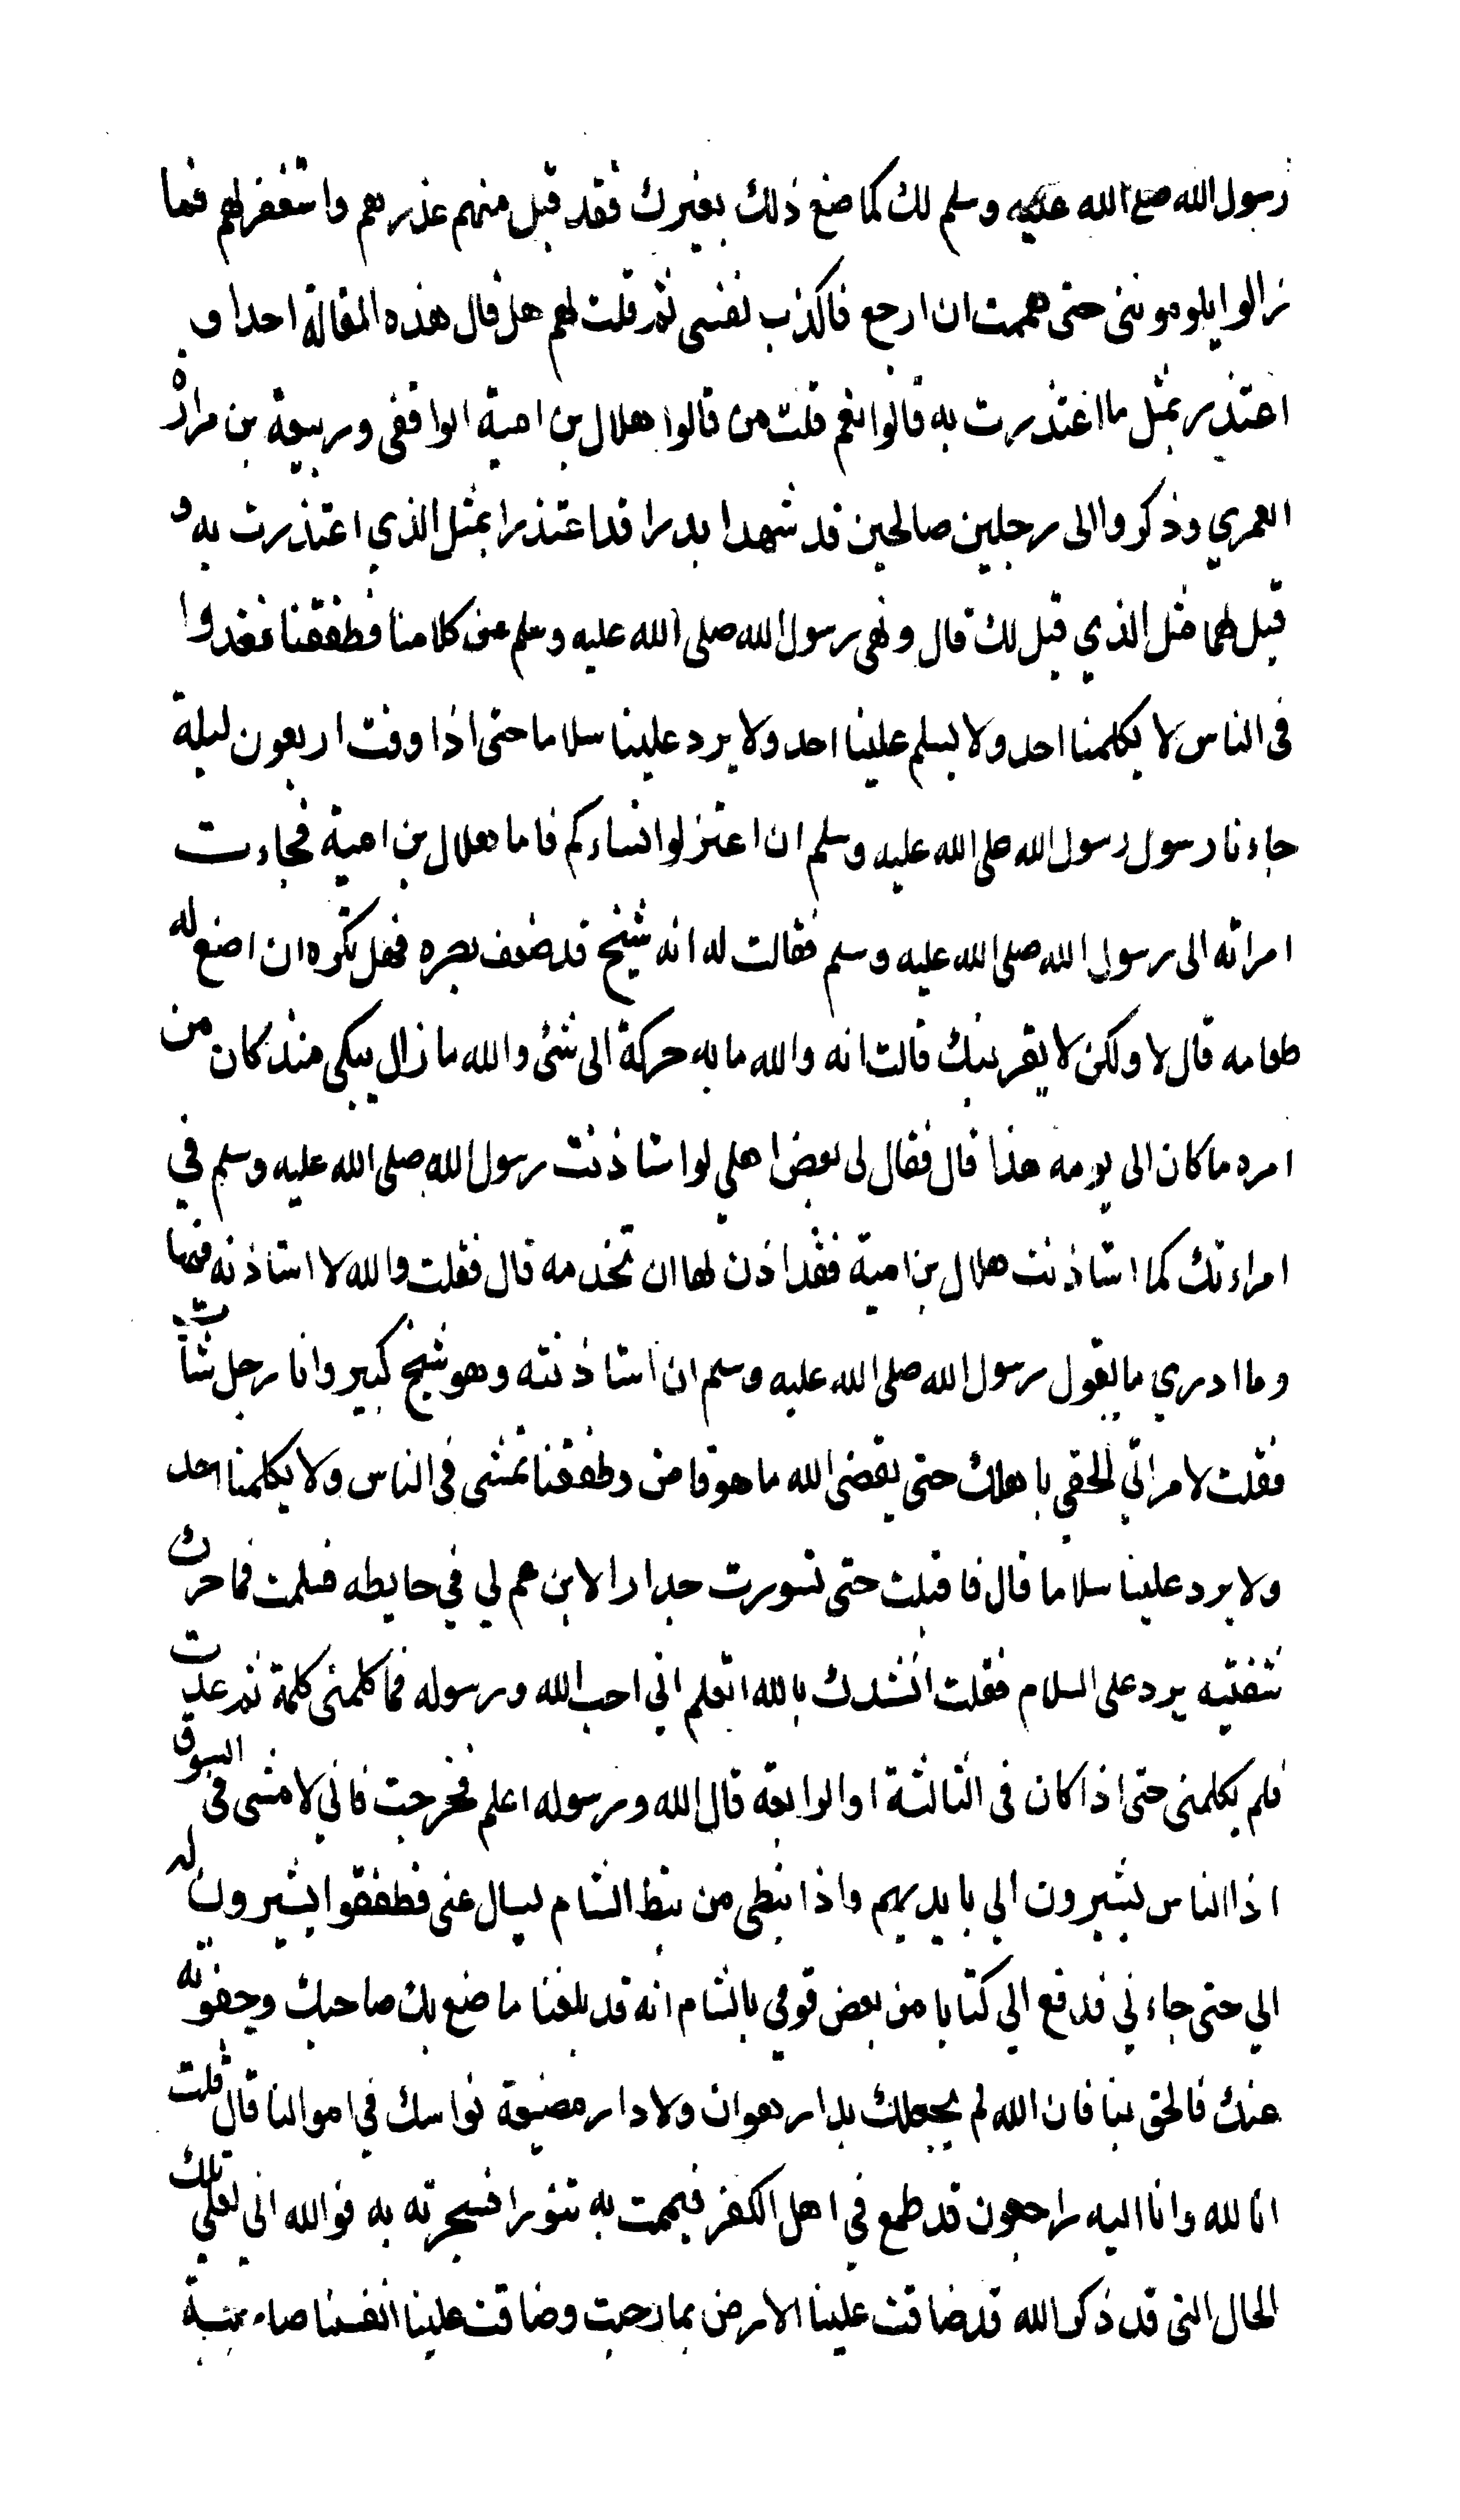 رسول الله صلى الله عليه وسلم لك كما صنع ذلك بغيرك فقد قبل منهم عذرهم واستغفر لهم فما
زالوا يلومونني حتى هممت ان ارجع فاكذب نفسي ثم قلت لهم هل قال هذه المقالة احد او
اعتذر بمثل ما اعتذرت به قالوا نعم قلت من قالوا هلال بن امية الواقفي وربيعة بن مرارة
العمري وذكروا الى رجلين صالحين قد شهدا بدرا قد اعتذرا بمثل الذي اعتذرت به و
قيل لهما مثل الذي قيل لك قال ونهى رسول الله صلى الله عليه وسلم عن كلامنا فطفقنا نغدوا
في الناس لا يكلمنا احد ولا يسلم علينا احد ولا يرد علينا سلاما حتى اذا وفت اربعون ليلة
جاءنا رسول رسول الله صلى الله عليه وسلم ان اعتزلوا نساءكم فاما هلال بن امية فجاءت
امراته الى رسول الله صلى الله عليه وسلم فقالت له انه شيخ قد ضعف بصره فهل تكره ان اصنع له
طعامه قال لا ولكن لا يقربنك قالت انه والله ما به حركة الى شئ والله ما زال يبكي منذ كان من
امره ما كان الى يومه هذا قال فقال لي بعض اهلي لو استاذنت رسول الله صلى الله عليه وسلم في
امراءتك كما استاذنت هلال بن امية فقد اذن لها ان تخدمه قال فقلت والله لا استاذنه فيها
وما ادري ما يقول رسول الله صلى الله عليه وسلم ان استاذنته وهو شيخ كبير وانا رجل شاب
فقلت لامراتي الحقي باهلك حتى يقضي الله ما هو قاض وطفقنا نمشي في الناس ولا يكلمنا احد
ولا يرد علينا سلاما قال فاقبلت حتى تسورت جدارا لابن عم لي في حايطه فسلمت فما حرك
شفتيه يرد على السلام فقلت انشدك بالله اتعلم اني احب الله ورسوله فما كلمني كلمة ثم عدت
فلم يكلمني حتى اذا كان في الثالثة او الرابعة قال الله ورسوله اعلم فخرجت فاني لامشي في السوق
اذا الناس يشيرون الي بايديهم واذا نبطي من نبط الشام يسال عني فطفقوا يشيرون له
الي حتى جاءني فدفع الي كتابا من بعض قومي بالشام انه قد بلغنا ما صنع بك صاحبك وجفوته
عنك فالحق بنا فان الله لم يجعلك بدار هوان ولا دار مضيعة نواسك في اموالنا قال قلت
انا لله وانا اليه راجعون قد طمع في اهل الكفر فيممت به تنورا فسجرته به فوالله اني لعلي تلك
الحال التي قد ذكر الله قد ضاقت علينا الارض بما رحبت وضاقت علينا انفسنا